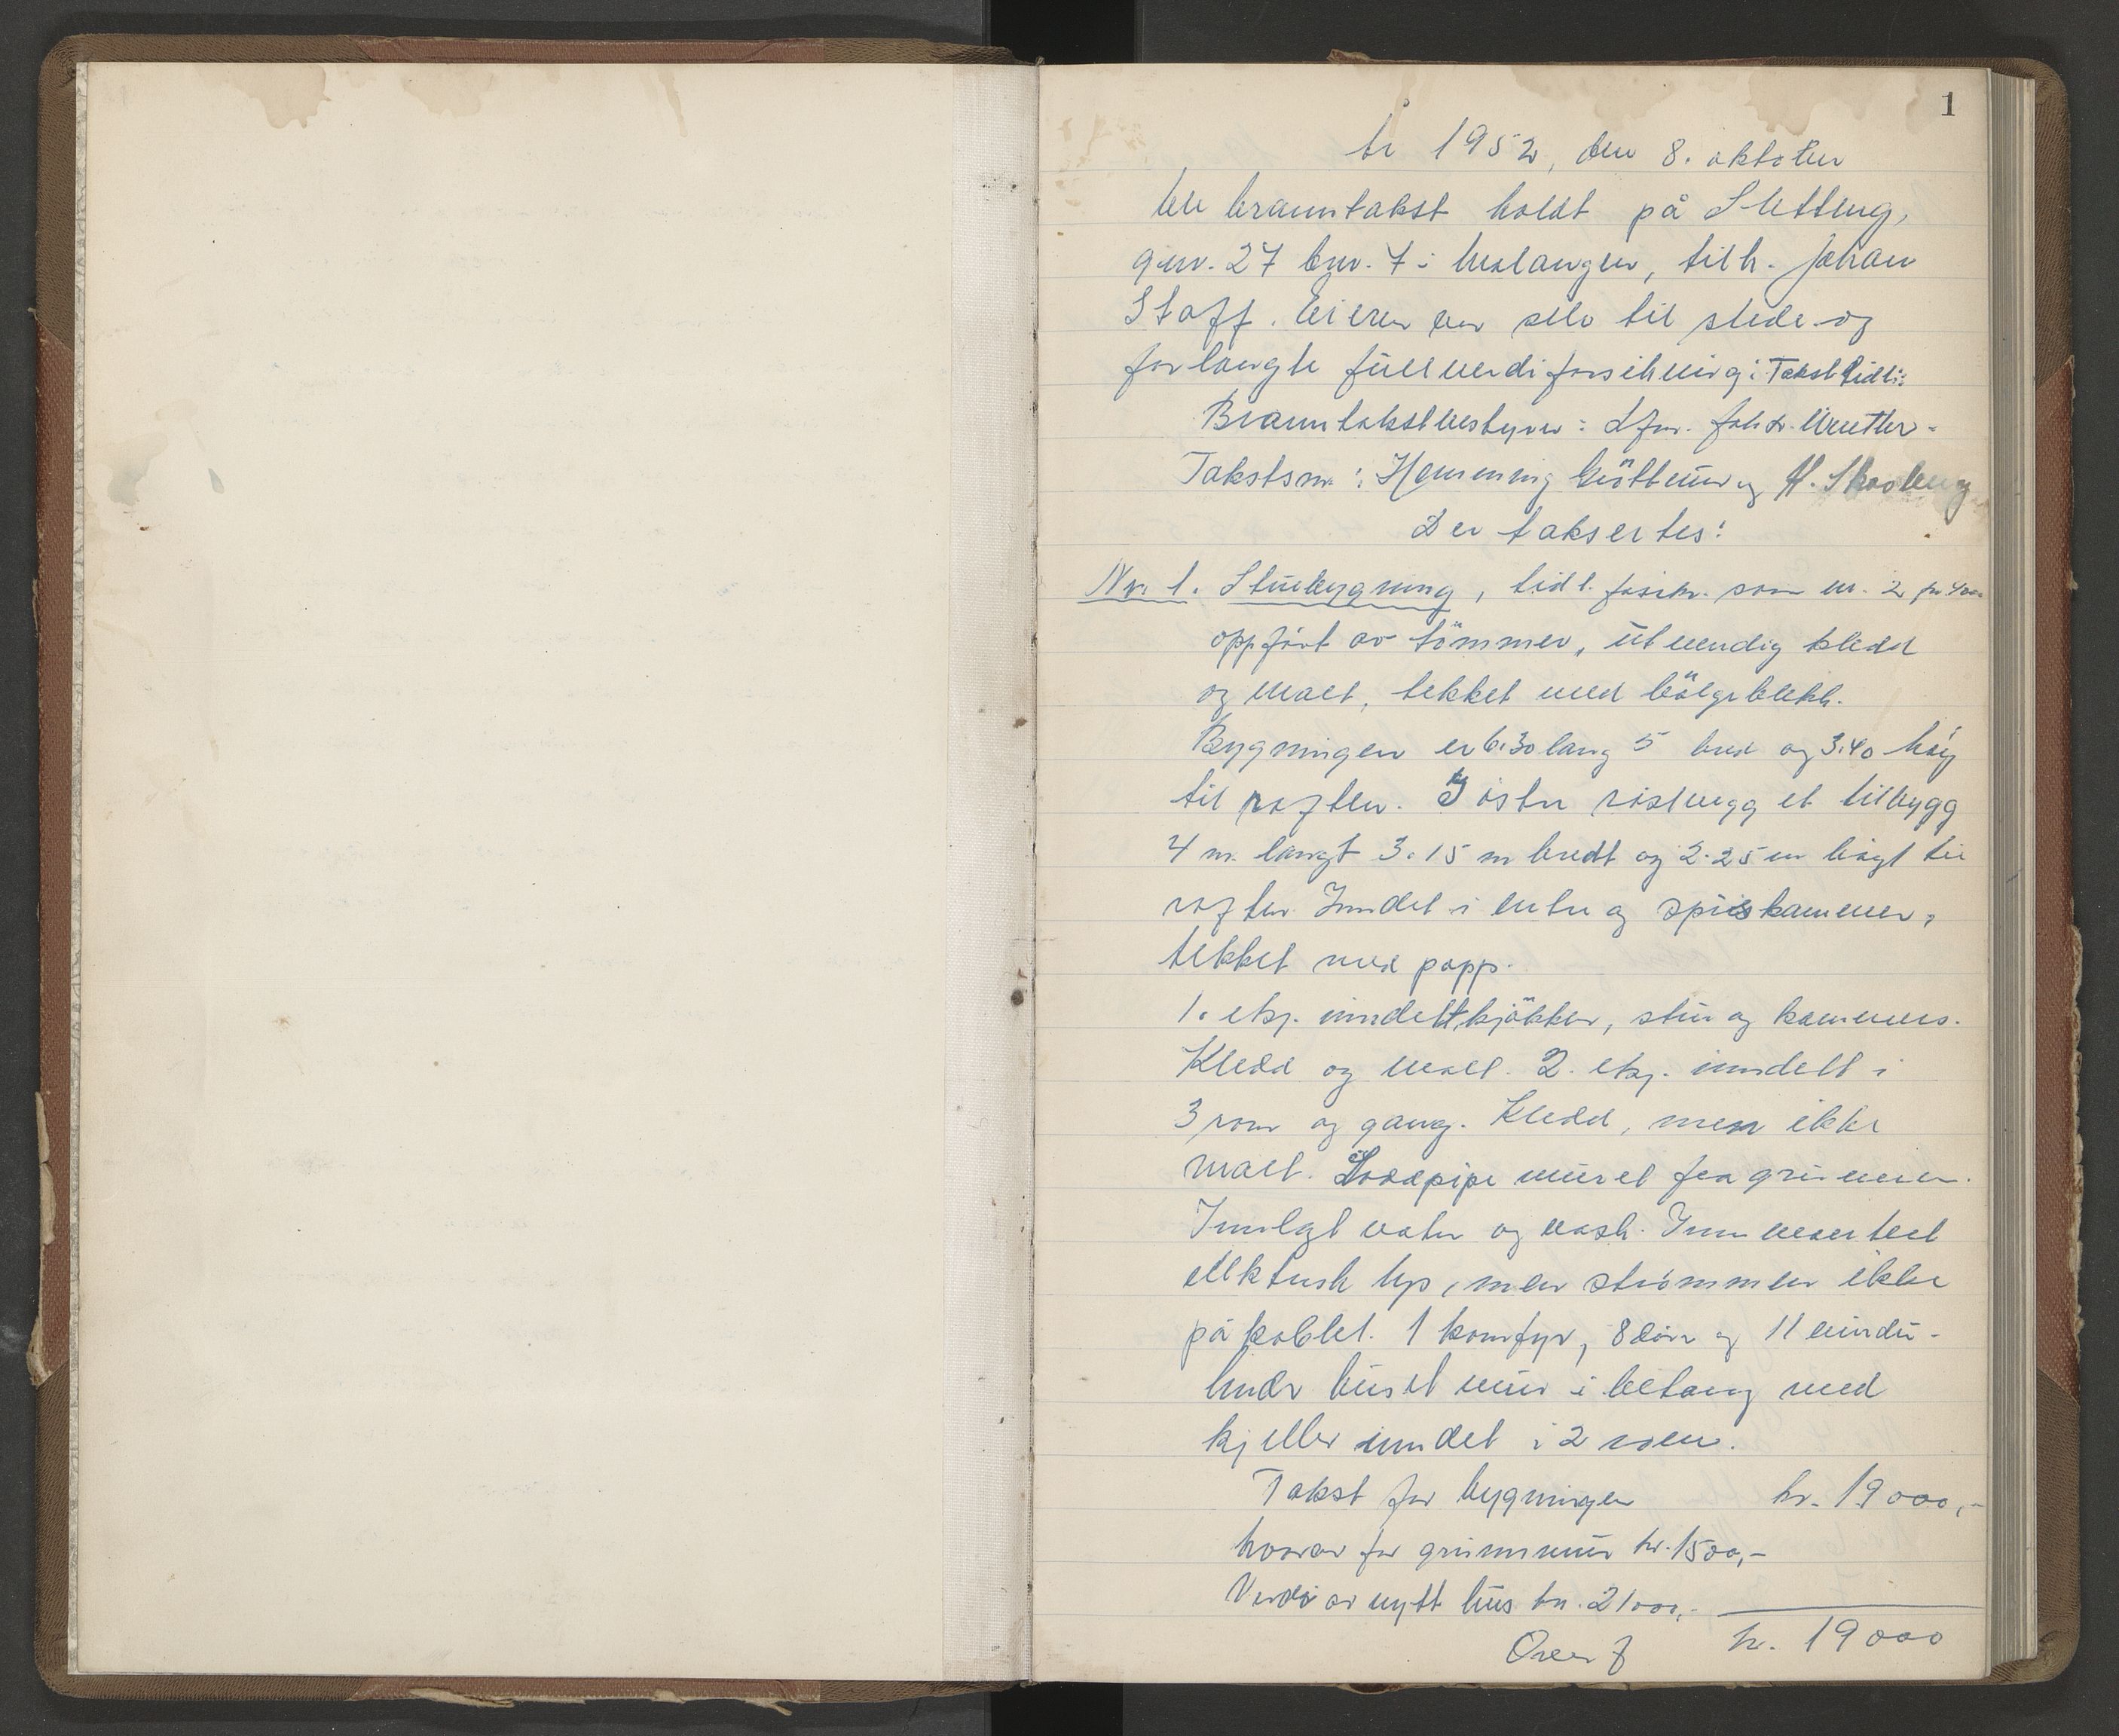 1
År 1952, den 8. oktober
ble branntakst holdt på Sletteng,
gnr. 27 bnr. 7 i Malangen, tilh. Johan
Staff. Eieren var selv til stede og
forlangte fullverdiforsikring i Takst tidl:
Branntakstbestyrer: Lfm.
Takstm: Hemming og H. Skogeng
Der taksertes:
Nr. 1. Stuebygning, tidl. forskr. som nr. 2
oppført av tömmer, utvendig kledd
og malt, tekket med bölgeblekk.
Bygningen er 6.30 lang 5 bred og 3.40 høy
til raften. I østre røstvegg et tilbygg
4 m. langt 3.15 m bredt og 2.25 m høgt til
raften Inndelt i entre og spiskammer,
tekket med papp.
1. etg. inndelt kjökken, stue og kammers.
Kledd og malt. 2. etg. inndelt i
3 rom og gang. Kledd, men ikke
malt. pipe muret fra grunnen.
Innlagt vatn og vask. Inn
elektrisk lys, men strømmen ikke
påkoblet. 1 komfyr, 8 dører og 11 vindu-
Under huset mur i betong med
kjeller inndelt i 2 rom.
Takst for bygningen kr. 19000,-
hvorav for grunnmur kr. 1500,-
Verdi av nytt hus kr. 21000,-
Over f kr. 19000